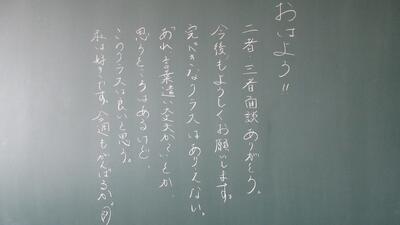 おはよう!!
二者・三者面談ありがとう。
今後もよろしくお願いします。
完ぺきなクラスはありえない。
あれ、言葉遣い大丈夫かな、とか
思うところはあるけど、
このクラスは良いと思う。
私は好きです。今週もがんばるか。